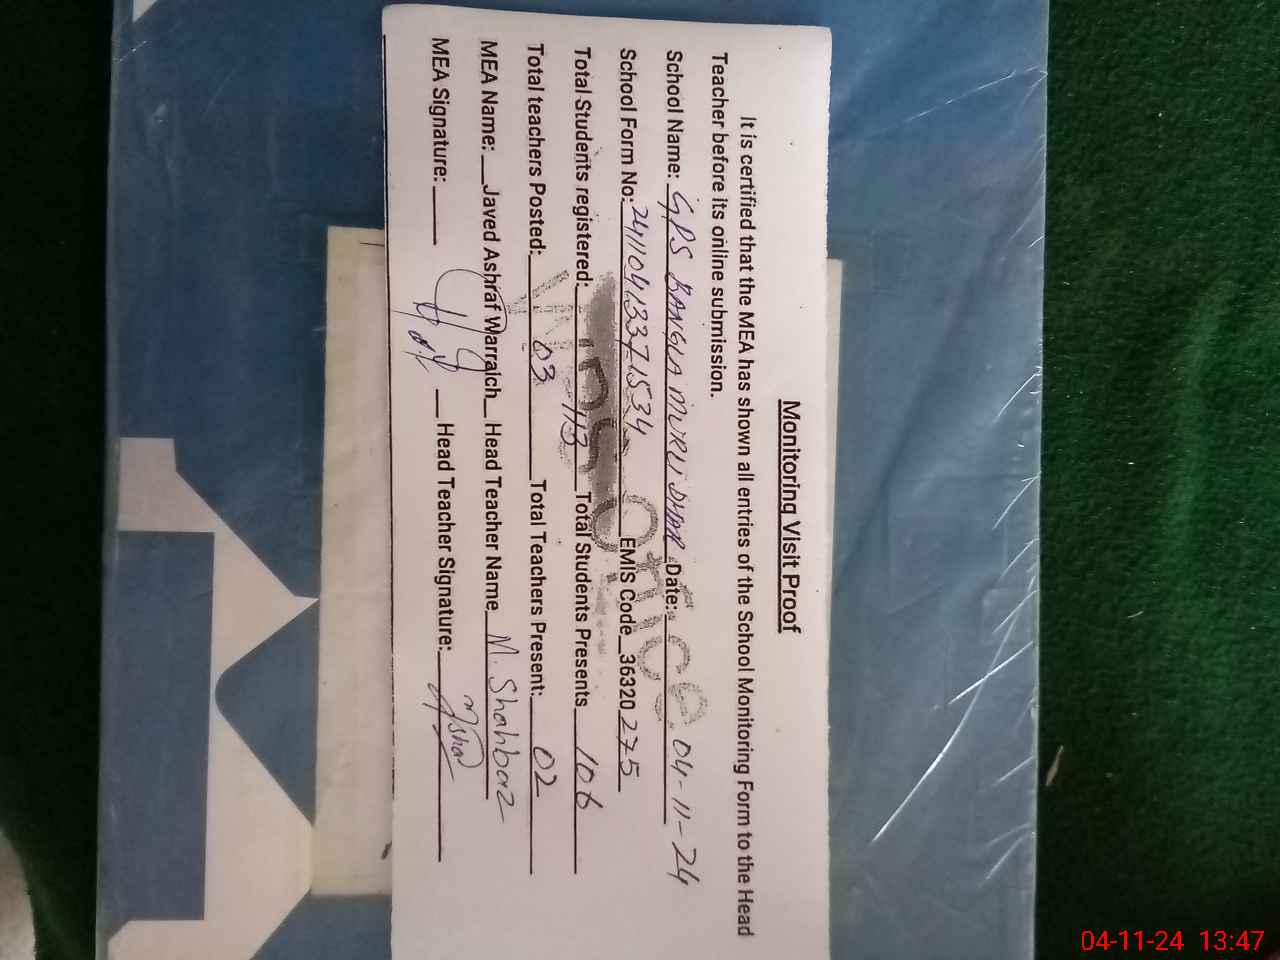 Monitoring Visit Proof
It is certified that the MEA has shown all entries of the School Monitoring Form to the Head
Teacher before its online submission.
School Name: GPS BANGLA MURLI DHAR Date: 04-11-24
School Form No: 241104133371534 EMIS Code 36320275
Total Students registered: 113 Total Students Presents 106
Total teachers Posted: 03 Total Teachers Present: 02
MEA Name: Javed Ashraf Warraich Head Teacher Name M. Shahbaz
MEA Signature: Head Teacher Signature:
Office
04-11-24 13:47